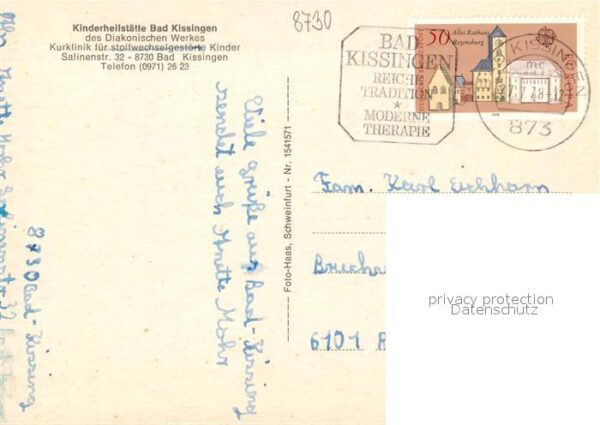 Kinderheilstätte Bad Kissingen
des Diakonischen Werkes
Kurklinik für stoffwechselgestörte Kinder
Salinenstr. 32 - 8730 Bad Kissingen
Telefon (0971) 26 23
8730
BAD
KISSINGEN
REICHE
TRADITION
*
MODERNE
THERAPIE
50 Altes Rathaus
Regensburg
EUROPA
KISSINGEN
mc
873
Viele grüße aus Bad-Kissing
sendet euch Anette Mohr
8730 Bad-Kissing
Foto-Haas, Schweinfurt - Nr. 1541571
Fam. Karl Eichhorn
6101
privacy protection
Datenschutz